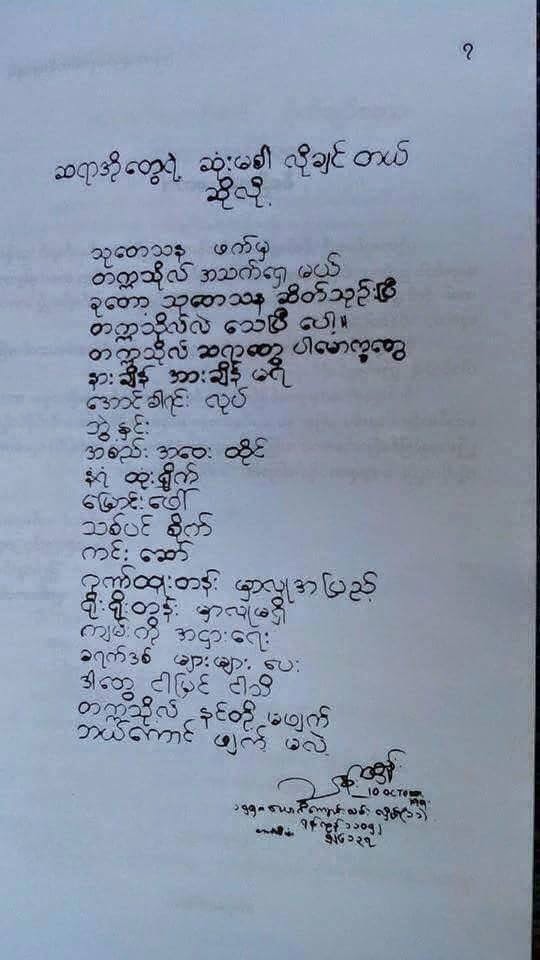 ၇
ဆရာအိုတွေရဲ့ ဆုံးမစါ လိုချင်တယ်
ဆိုလို့
သုတေသန ဖက်မှ
တက္ကသိုလ် အသက်ရှေ မယ်
ခုတော့ သုတေသန ဆိတ်သုဉ်းပြီ
တက္ကသိုလ်လဲ သေပြီ ပေါ့။
တက္ကသိုလ် ဆရာတွေ ပါမောက္ခတွေ
နားချိန် အားချိန် မရ
အောင်ခါရုံး လုပ်
ဘွဲ့နှင်း
အစည်းအဝေး ထိုင်
နံရံ ထုံးသုတ်
မြောင်းဖေါ်
သစ်ပင် စိုက်
ကင်း စော်
ဂုဏ်ထူးတန်း မှာလူအပြည့်
ရိုးရိုးတန်း မှာလူမရှိ
ကျမ်းကို အငှားရေး
ခရက်ဒစ် များများ ပေး
ဒါတွေ ငါမြင် ငါသိ
တက္ကသိုလ် နင်တို့ မဖျက်
ဘယ်ကောင် ဖျက် မလဲ့
10 OCTO